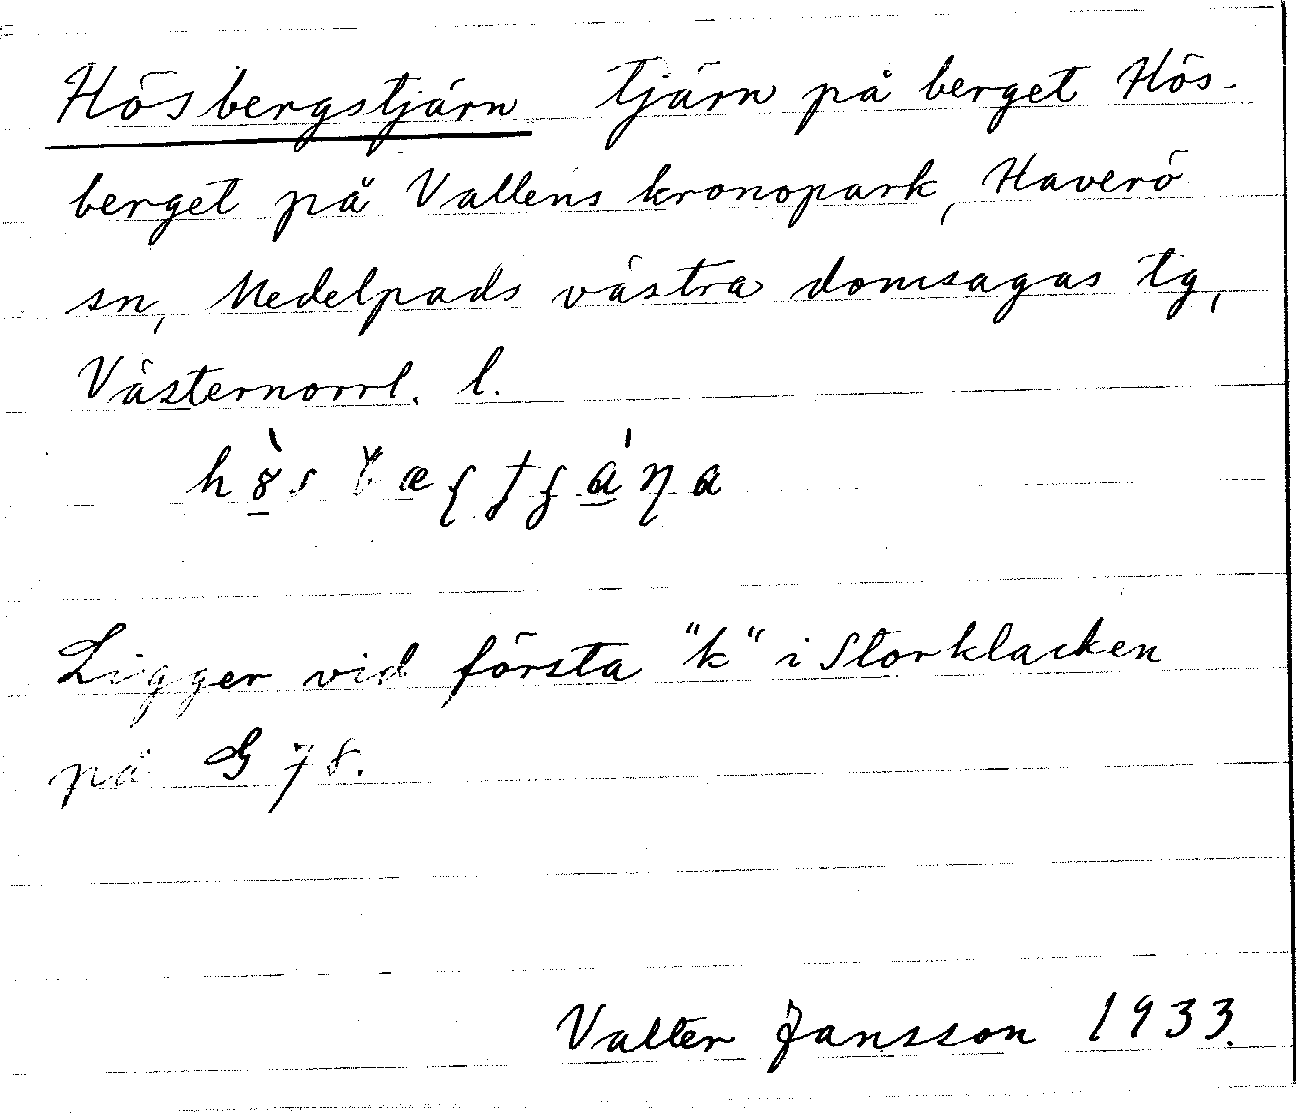 Hösbergstjärn tjärn på berget Hös-
berget på Vallens kronopark, Haverö
sn, Medelpads västra domsagas tg,
Västernorrl. l.
Ligger vid första "k" i Storklacken
på G 78.
Valter Jansson 1933.